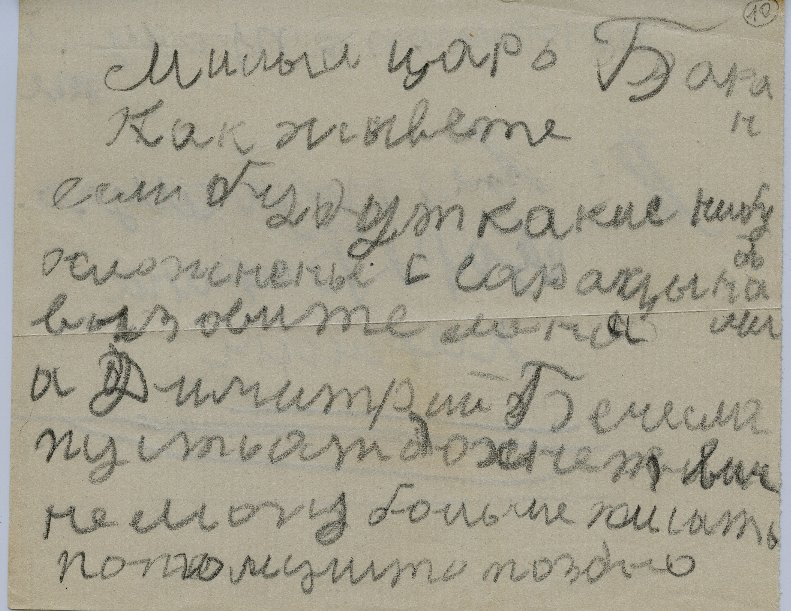 10
Милыи царь Баран
Как жывете
если будут какие нибудь
осложненье с сарацынами
вызовите меня
а Димитрий Бечемевич
пусть атдохнет
не могу больше писать
потомушто поздно